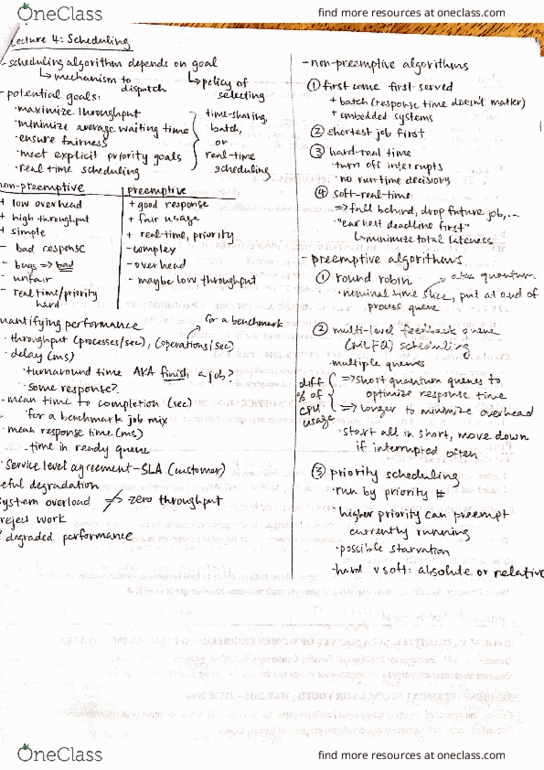 OneClass
find more resources at oneclass.com
Lecture 4: Scheduling
-scheduling algorithm depends on goal
↳ mechanism to dispatch
↳ policy of selecting
-potential goals:
·maximize throughput
·minimize average waiting time
·ensure fairness
·meet explicit priority goals
·real time scheduling
time-sharing,
batch,
or
real-time
scheduling
non-preemptive | preemptive
+ low overhead | + good response
+ high throughput | + fair usage
+ simple | + real-time, priority
- bad response | -complex
- bugs ⇒ bad | -overhead
- unfair | - maybe low throughput
- real time/priority
hard
uantifying performance
for a benchmark
·throughput (processes/sec), (operations/sec)
·delay (ms)
·turnaround time AKA finish a job?
·some response?
-mean time to completion (sec)
for a benchmark job mix
-mean response time (ms)
·time in ready queue
·Service level agreement-SLA (customer)
eful degradation
system overload ≠> zero throughput
reject work
degraded performance
-non-preemptive algorithms
① first come first served
+ batch (response time doesn't matter)
+ embedded systems
② shortest job first
③ hard-real time
·turn off interrupts
·no runtime decisions
④ soft-real-time
⇒ fall behind, drop future job,...
·"earliest deadline first"
↳minimize total lateness
-preemptive algorithms
① round robin
aka quantum
·nominal time slice, put at end of
process queue
② multi-level feedback queue
(MLFQ) scheduling
·multiple queues
diff
% of
cpu
usage
⇒short quantum queues to
optimize response time
⇒ longer to minimize overhead
·start all in short, move down
if interrupted often
③ priority scheduling
·run by priority #
·higher priority can preempt
currently running
·possible starvation
·hard v soft: absolute or relative
OneClass
find more resources at oneclass.com